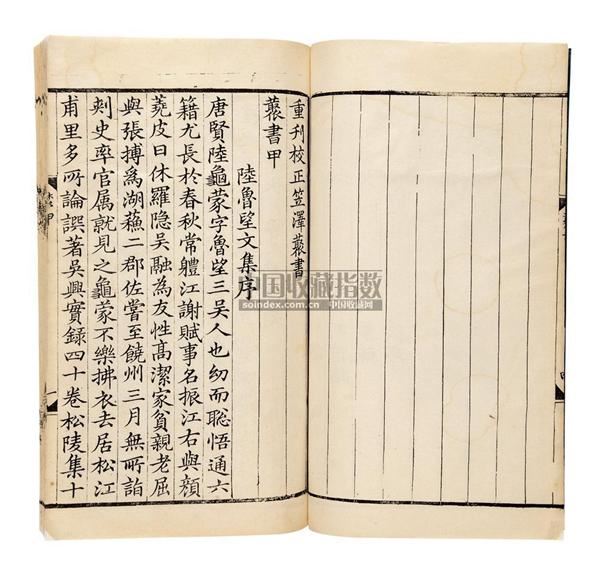 重刊校正笠澤藂書
藂書甲
陸魯望文集序
唐賢陸龜蒙字魯望三吳人也幼而聡悟通六
籍尤長於春秋常軆江謝賦事名振江右與顔
蕘皮日休羅隐吳融為友性高潔家貧親老屈
與張摶為湖蘓二郡佐嘗至饒州三月無所詣
刾史率官属就見之龜蒙不樂拂衣去居松江
甫里多所論譔著吳興實録四十卷松陵集十
中国收藏指数
soindex.com.cn 中国收藏网